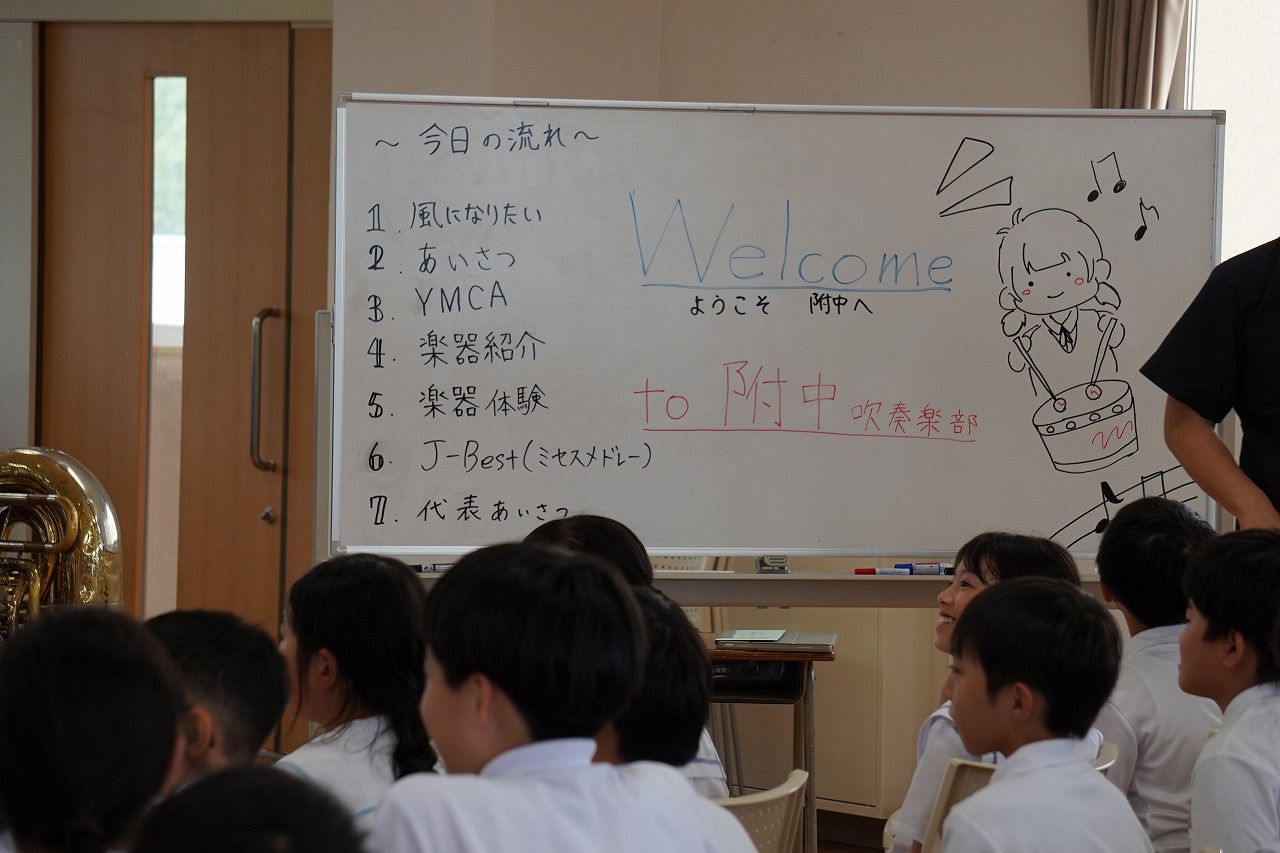 ～ 今日の流れ～
1. 風になりたい
2. あいさつ
3. YMCA
4. 楽器紹介
5. 楽器体験
6. J-Best(ミセスメドレー)
7. 代表あいさつ
Welcome
ようこそ 附中へ
to 附中 吹奏楽部